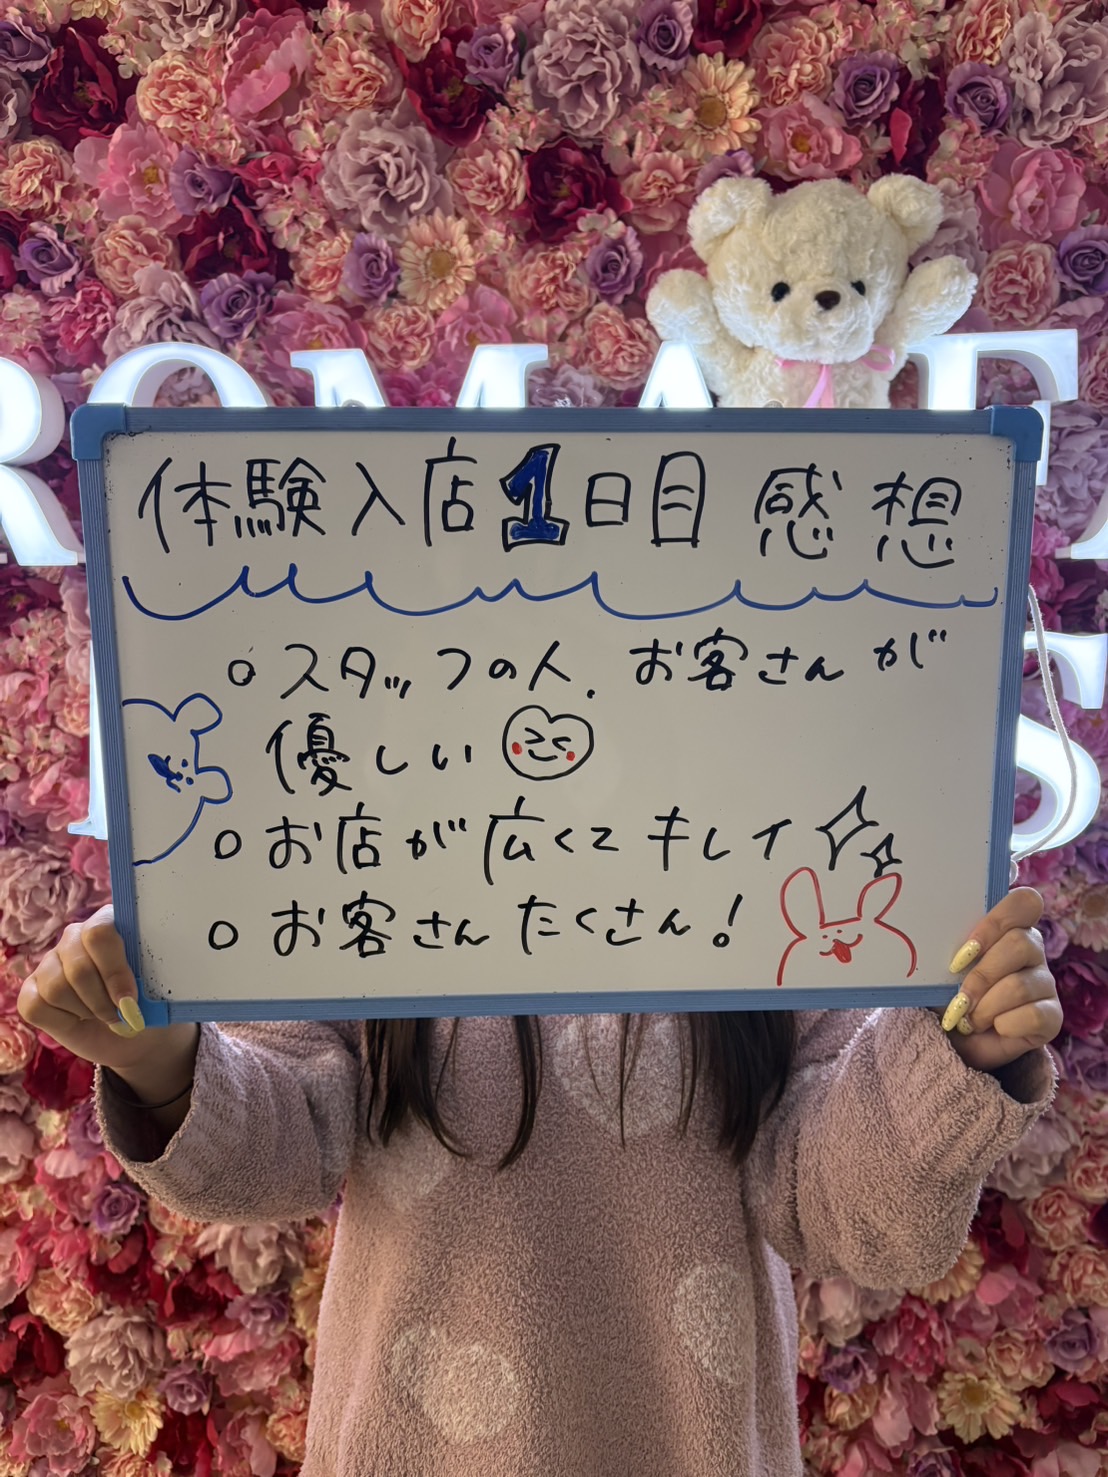 ROMA
体験入店1日目 感想
○ スタッフの人、お客さんが
優しい
○ お店が広くてキレイ
○ お客さんたくさん!
S